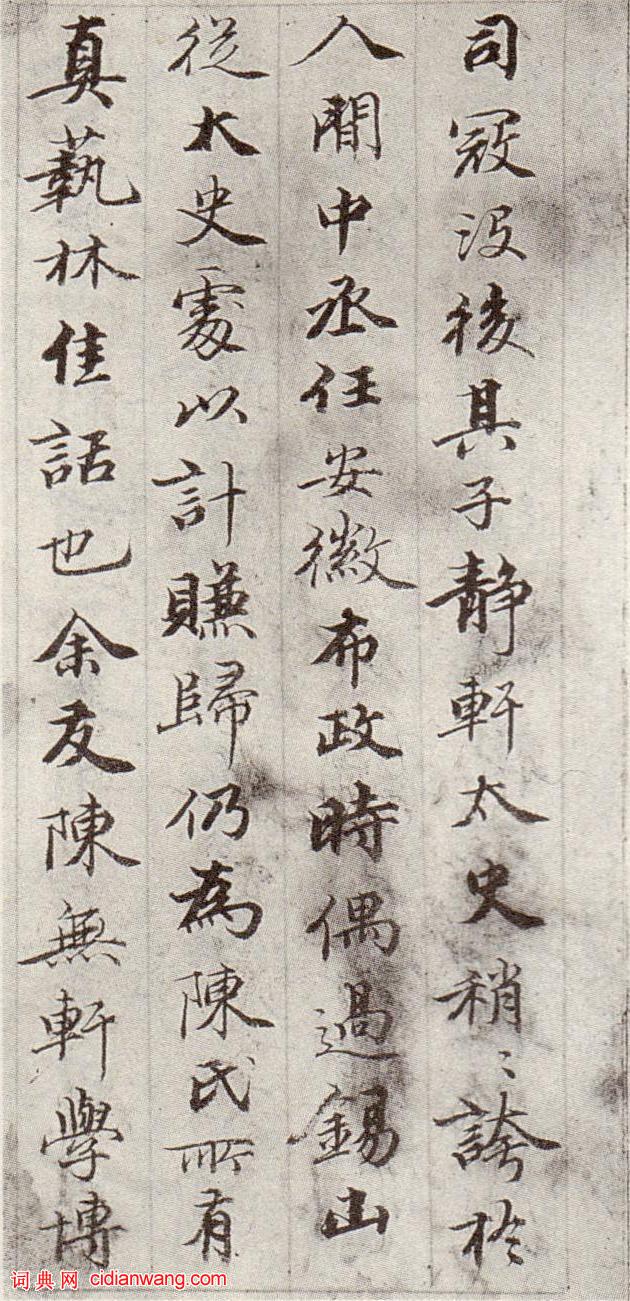 司寇没後其子静軒太史稍〻誇於
人間中丞任安徽布政時偶過錫山
從太史處以計賺歸仍為陳氏所有
真藝林佳話也余友陳無軒學博
词典网 cidianwang.com